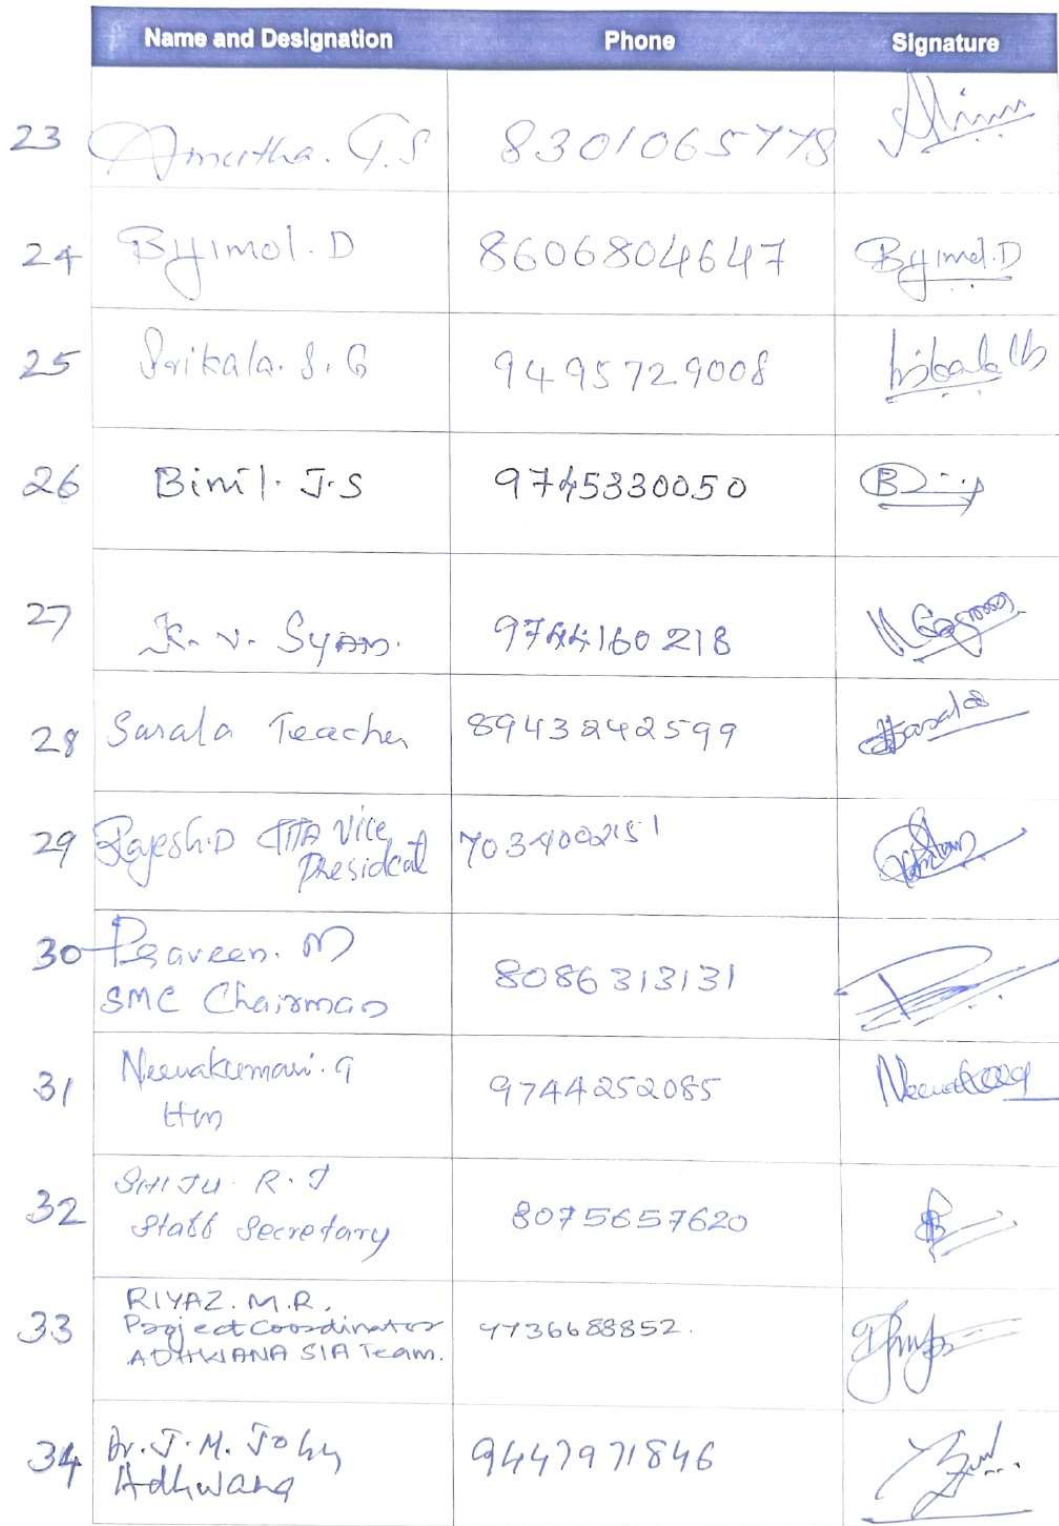 Name and Designation Phone Signature
23 Amrutha. G.S 8301065778
24 Byjimol. D 8606804647 Byjimol.D
25 Srikala. S. G 9495729008
26 Binil. J.S 9745330050
27 K. V. Syam. 9744160218
28 Sarala Teacher 8943242599 Sarala
29 Rajesh.D PTA Vice 7034002151
President
30 Praveen. M
SMC Chairman 8086313131
31 Neenakumari. G
Hm 9744252085
32 SHIJU R. J
Staff Secretary 8075657620
33 RIYAZ. M.R,
Project Coordinator 9736688852.
ADHWANA SIA Team.
34 Dr. J. M. Johy 9447971846
Adhwana